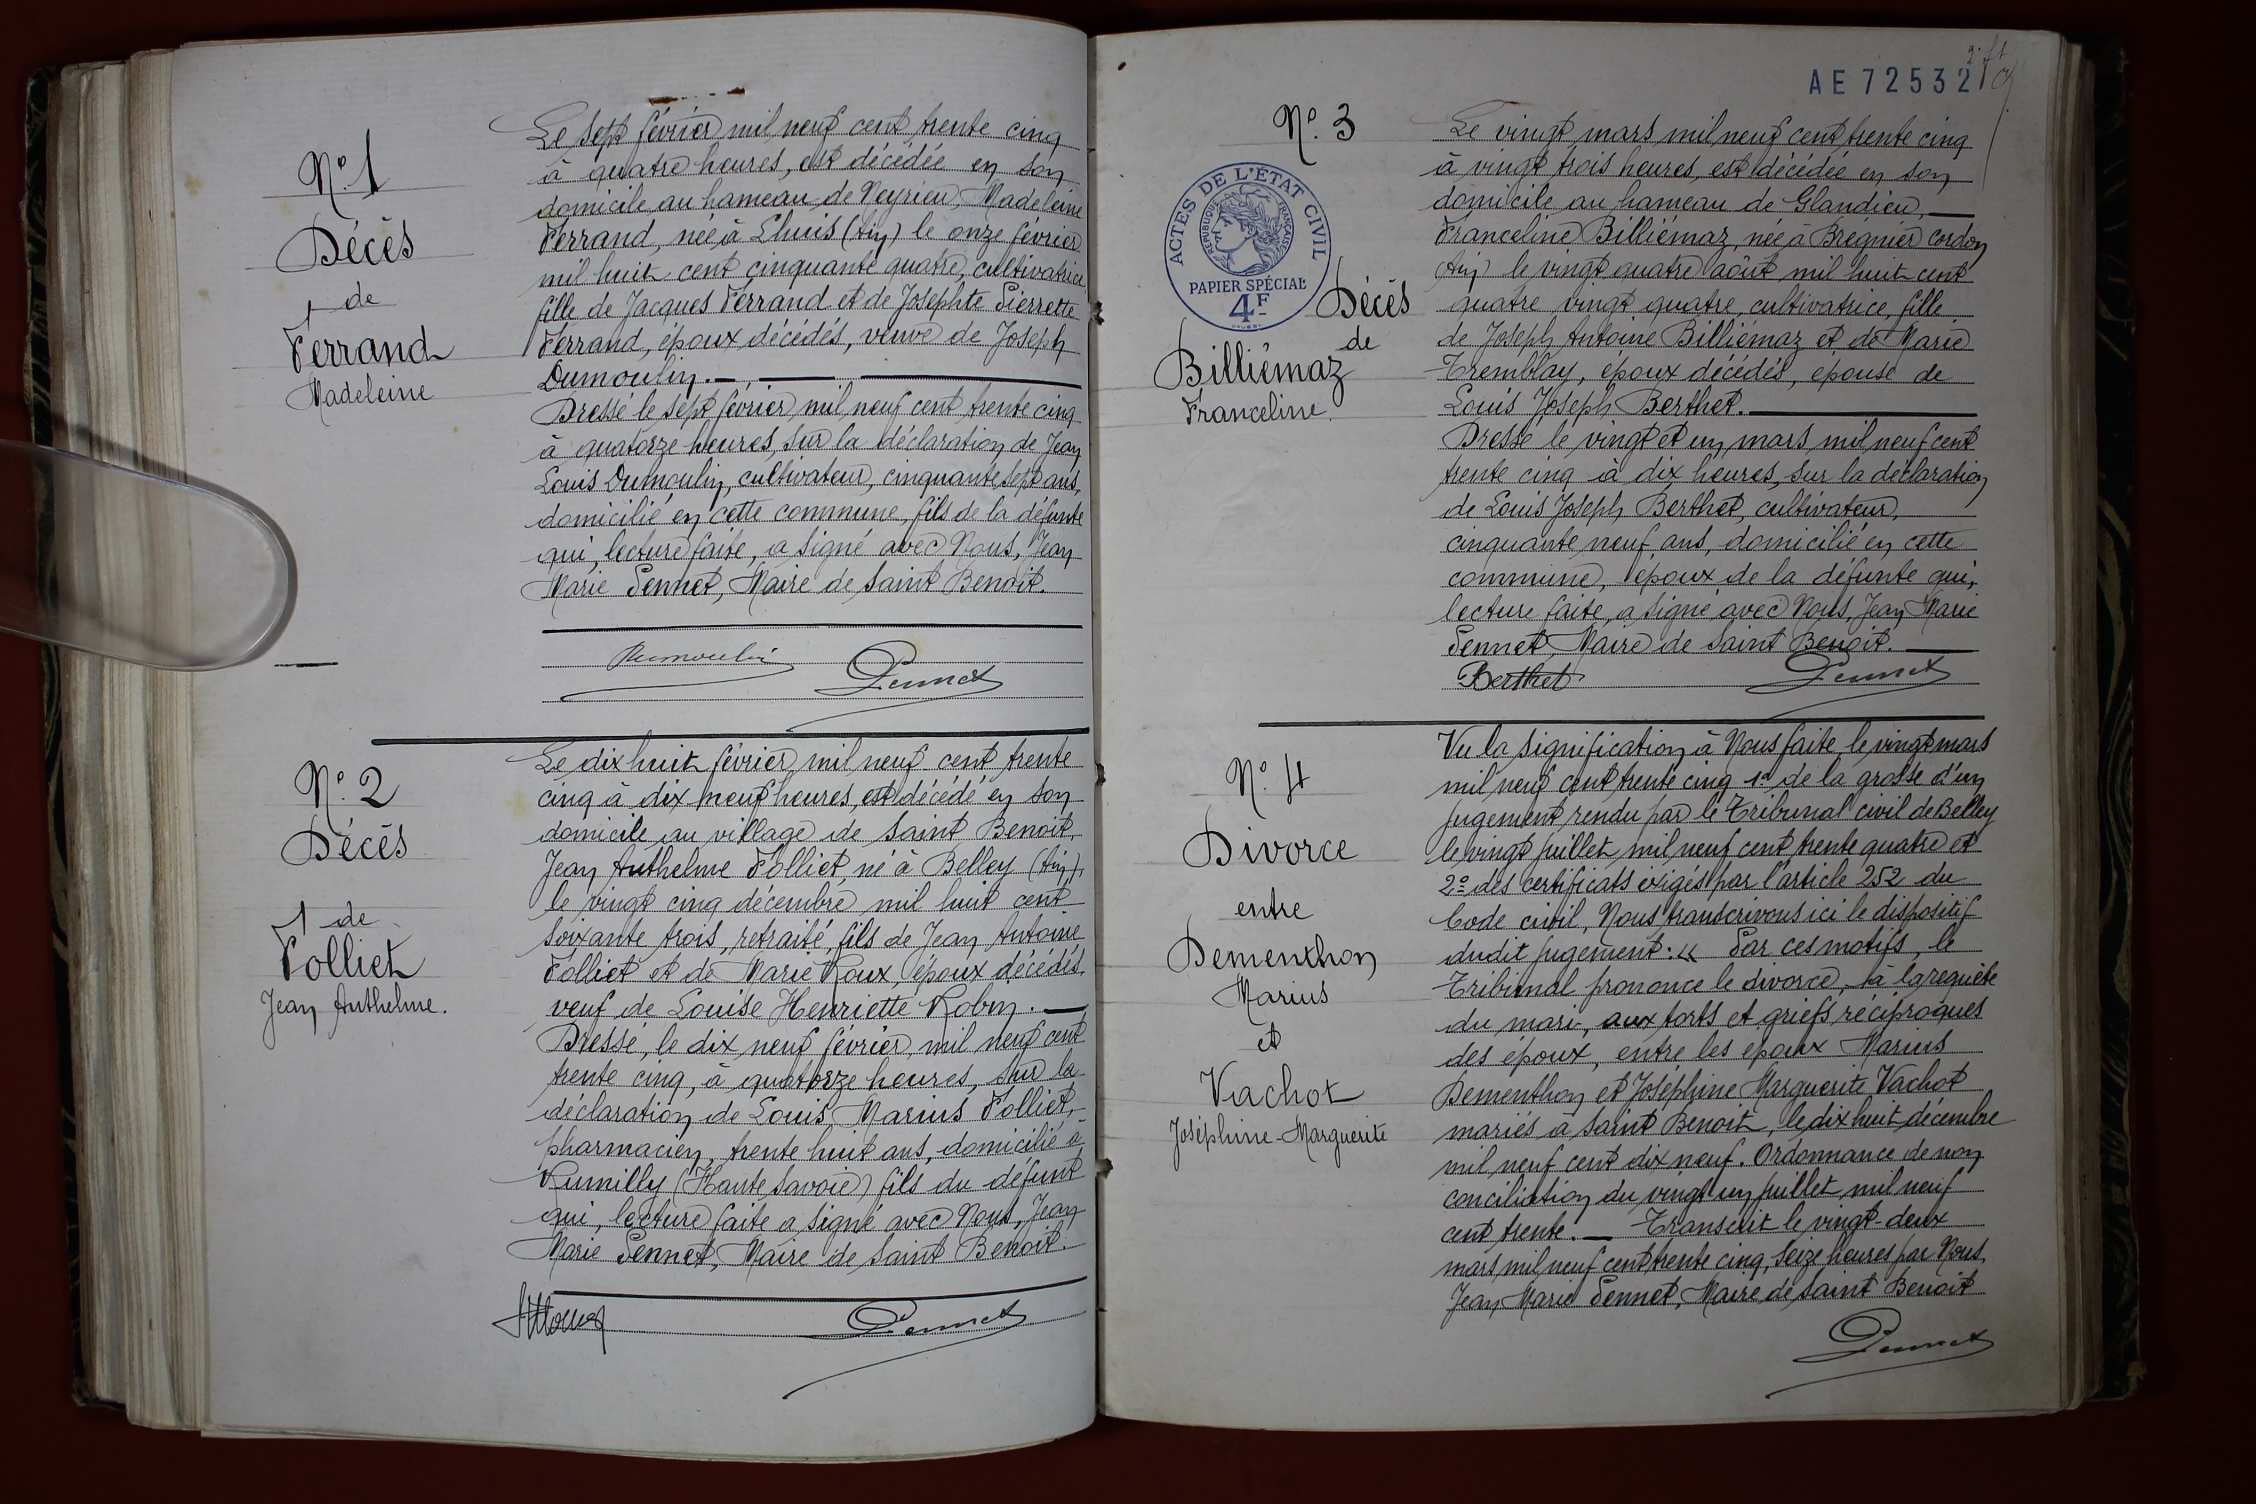 N° 1
Décès
de
Ferrand
Madeleine
Le sept février mil neuf cent trente cinq
à quatre heures, est décédée en son
domicile au hameau de Neyrieu, Madeleine
Ferrand, née à Lhuis (Ain) le onze février
mil huit cent cinquante quatre, cultivatrice
fille de Jacques Ferrand et de Josephte Pierrette
Ferrand, époux décédés, veuve de Joseph
Dumoulin.
Dressé le sept février mil neuf cent trente cinq
à quatorze heures, sur la déclaration de Jean
Louis Dumoulin, cultivateur, cinquante sept ans,
domicilié en cette commune, fils de la défunte
qui, lecture faite, a signé avec Nous, Jean
Marie Pennet, Maire de Saint Benoit.
Dumoulin Pennet
N° 2
Décès
de
Folliet
Jean Anthelme.
Le dix huit février mil neuf cent trente
cinq à dix neuf heures, est décédé en son
domicile au village de Saint Benoit,
Jean Anthelme Folliet, né à Belley (Ain),
le vingt cinq décembre mil huit cent
soixante trois, retraité, fils de Jean Antoine
Folliet et de Marie Roux, époux décédés,
veuf de Louise Henriette Robin.
Dressé, le dix neuf février, mil neuf cent
trente cinq, à quatorze heures, sur la
déclaration de Louis Marius Folliet,
pharmacien, trente huit ans, domicilié à
Rumilly (Haute Savoie) fils du défunt
qui, lecture faite a signé avec Nous, Jean
Marie Pennet, Maire de Saint Benoit.
Pennet
AE 72532
N° 3
ACTES DE L'ÉTAT CIVIL
RÉPUBLIQUE FRANÇAISE
PAPIER SPÉCIAL
4F
Décès
de
Billiémaz
Franceline.
Le vingt mars mil neuf cent trente cinq
à vingt trois heures, est décédée en son
domicile au hameau de Glandieu,
Franceline Billiémaz, née à Bregnier Cordon
(Ain) le vingt quatre août mil huit cent
quatre vingt quatre, cultivatrice, fille
de Joseph Antoine Billiémaz et de Marie
Tremblay, époux décédés, épouse de
Louis Joseph Berthet.
Dressé le vingt et un mars mil neuf cent
trente cinq à dix heures, sur la déclaration
de Louis Joseph Berthet, cultivateur,
cinquante neuf ans, domicilié en cette
commune, époux de la défunte qui,
lecture faite, a signé avec Nous, Jean Marie
Pennet, Maire de Saint Benoit.
Berthet Pennet
N° 4
Divorce
entre
Dementhon
Marius
et
Vachot
Joséphine-Marguerite
Vu la signification à Nous faite, le vingt mars
mil neuf cent trente cinq 1° de la grosse d'un
jugement rendu par le Tribunal civil de Belley
le vingt juillet mil neuf cent trente quatre et
2° des certificats exigés par l'article 252 du
Code civil, Nous transcrivons ici le dispositif
dudit jugement: « Par ces motifs, le
Tribunal prononce le divorce, à la requête
du mari, aux torts et griefs réciproques
des époux, entre les époux Marius
Dementhon et Joséphine Marguerite Vachot
mariés à Saint Benoit, le dix huit décembre
mil neuf cent dix neuf. Ordonnance de non
conciliation du vingt un juillet mil neuf
cent trente. — Transcrit le vingt-deux
mars mil neuf cent trente cinq, seize heures par Nous,
Jean Marie Pennet, Maire de Saint Benoit
Pennet